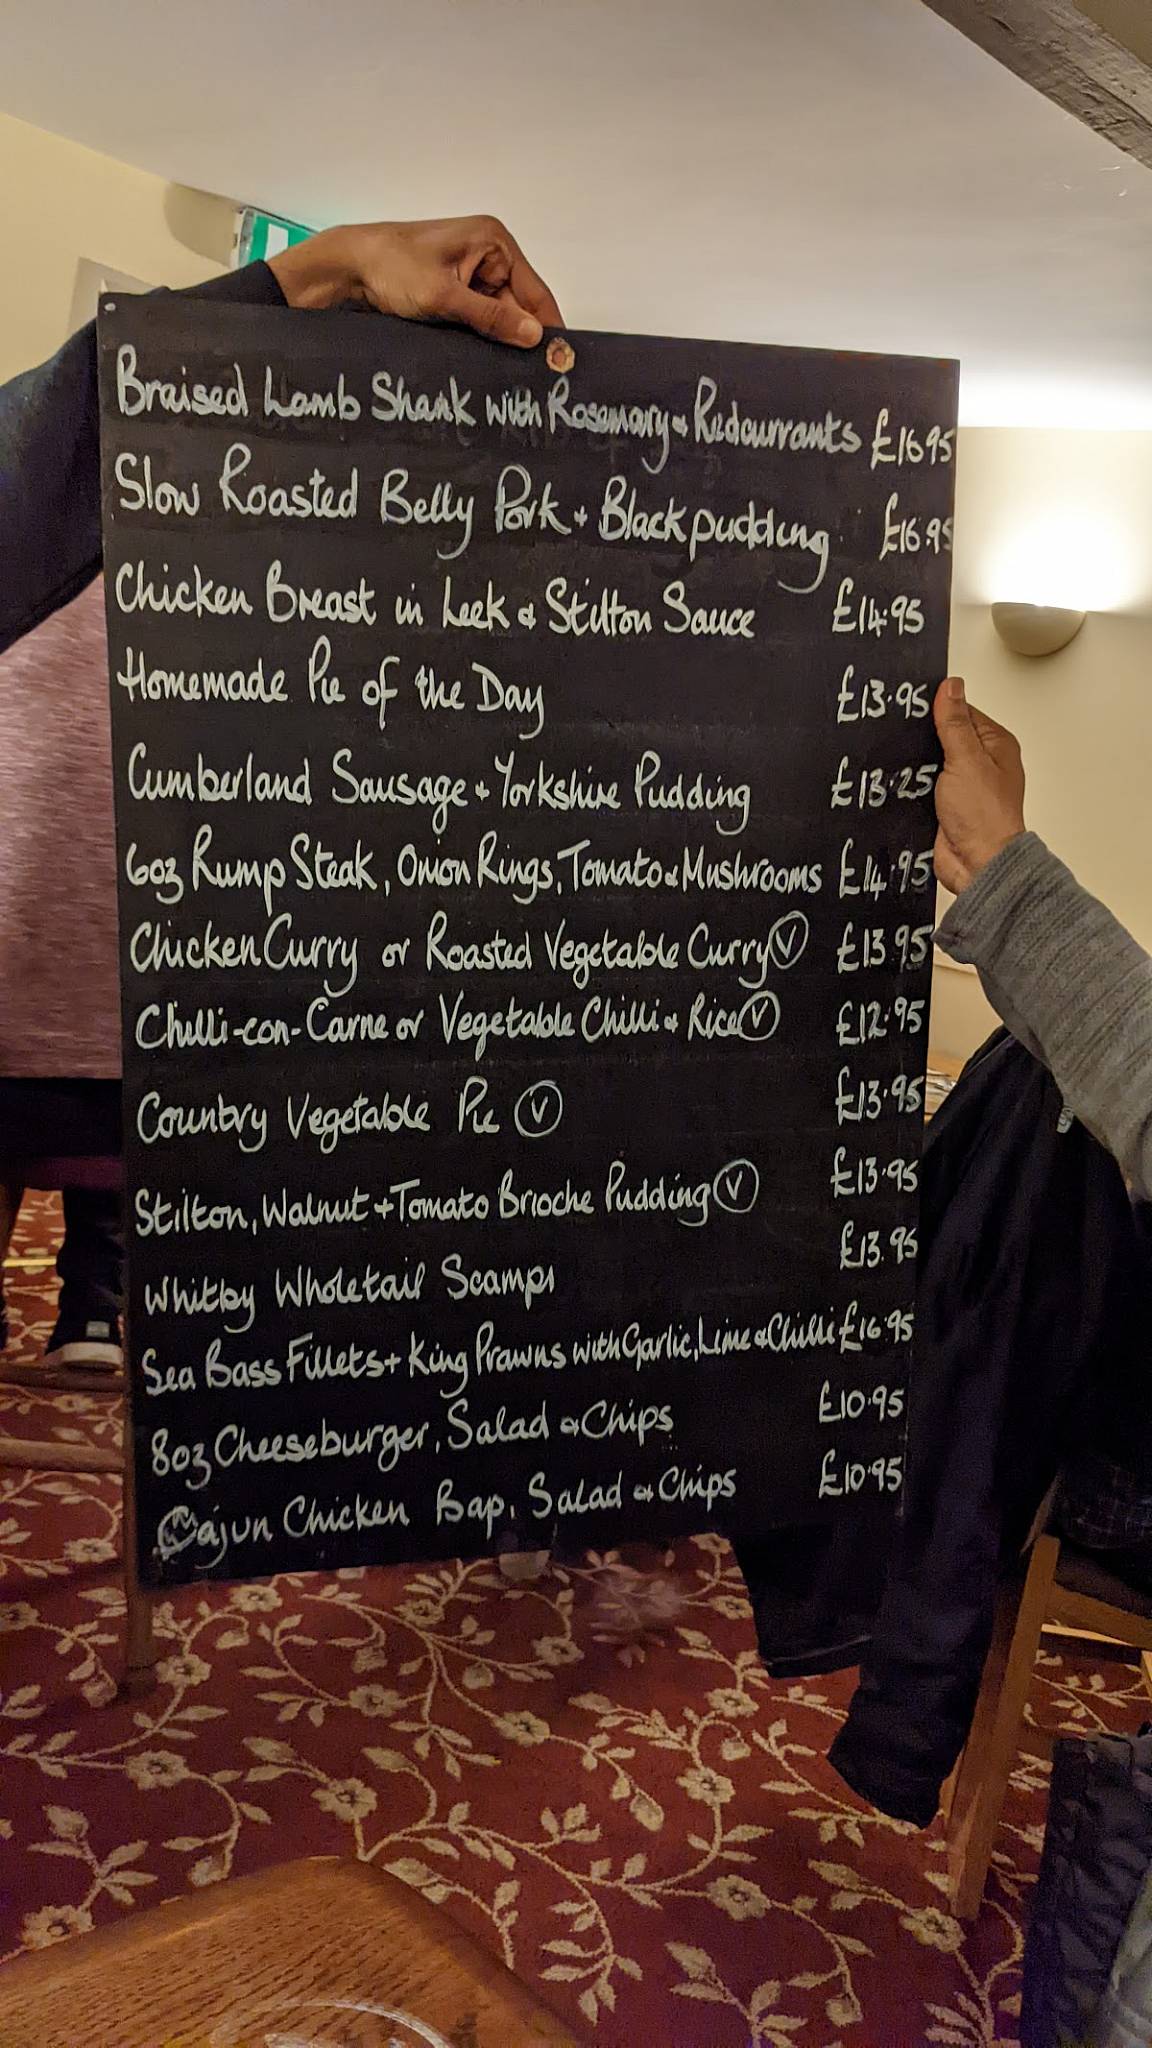 Braised Lamb Shank with Rosemary & Redcurrants £16.95
Slow Roasted Belly Pork + Blackpudding £16.95
Chicken Breast in Leek & Stilton Sauce £14.95
Homemade Pie of the Day £13.95
Cumberland Sausage + Yorkshire Pudding £13.25
6oz Rump Steak, Onion Rings, Tomato & Mushrooms £14.95
Chicken Curry or Roasted Vegetable Curry Ⓥ £13.95
Chilli-con-Carne or Vegetable Chilli & Rice Ⓥ £12.95
Country Vegetable Pie Ⓥ £13.95
Stilton, Walnut + Tomato Brioche Pudding Ⓥ £13.95
Whitby Wholetail Scampi £13.95
Sea Bass Fillets + King Prawns with Garlic, Lime & Chilli £16.95
8oz Cheeseburger, Salad & Chips £10.95
Cajun Chicken Bap, Salad & Chips £10.95